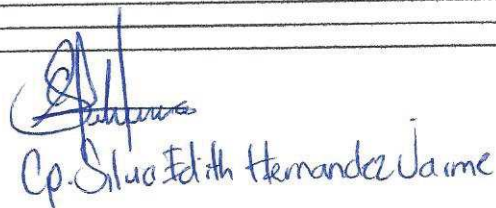 Cp. Silva Edith Hernandez Jaime